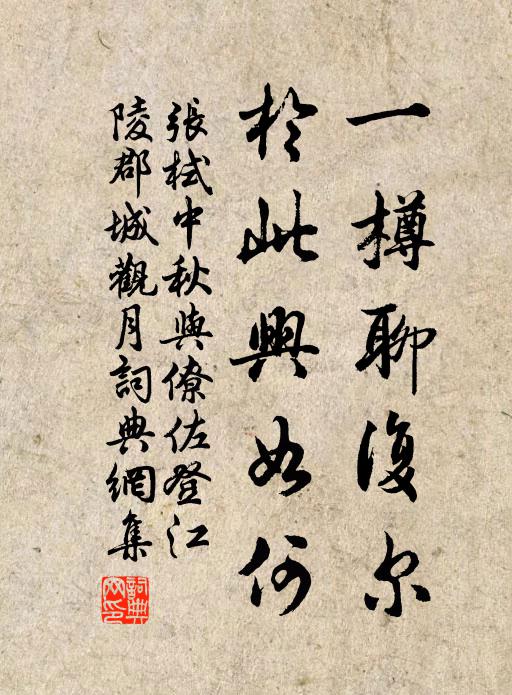 一樽聊復尔
於此興如何
張栻中秋與僚佐登江
陵郡城觀月詞典網集